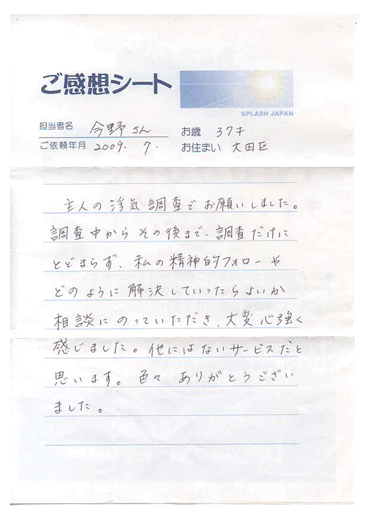 ご感想シート
SPLASH JAPAN
担当者名 今野さん
お歳 37才
ご依頼年月 2009. 7.
お住まい 大田区
主人の浮気調査でお願いしました。
調査中からその後まで、調査だけに
とどまらず、私の精神的フォローや
どのように解決していったらよいか
相談にのっていただき、大変心強く
感じました。他にはないサービスだと
思います。色々ありがとうござい
ました。